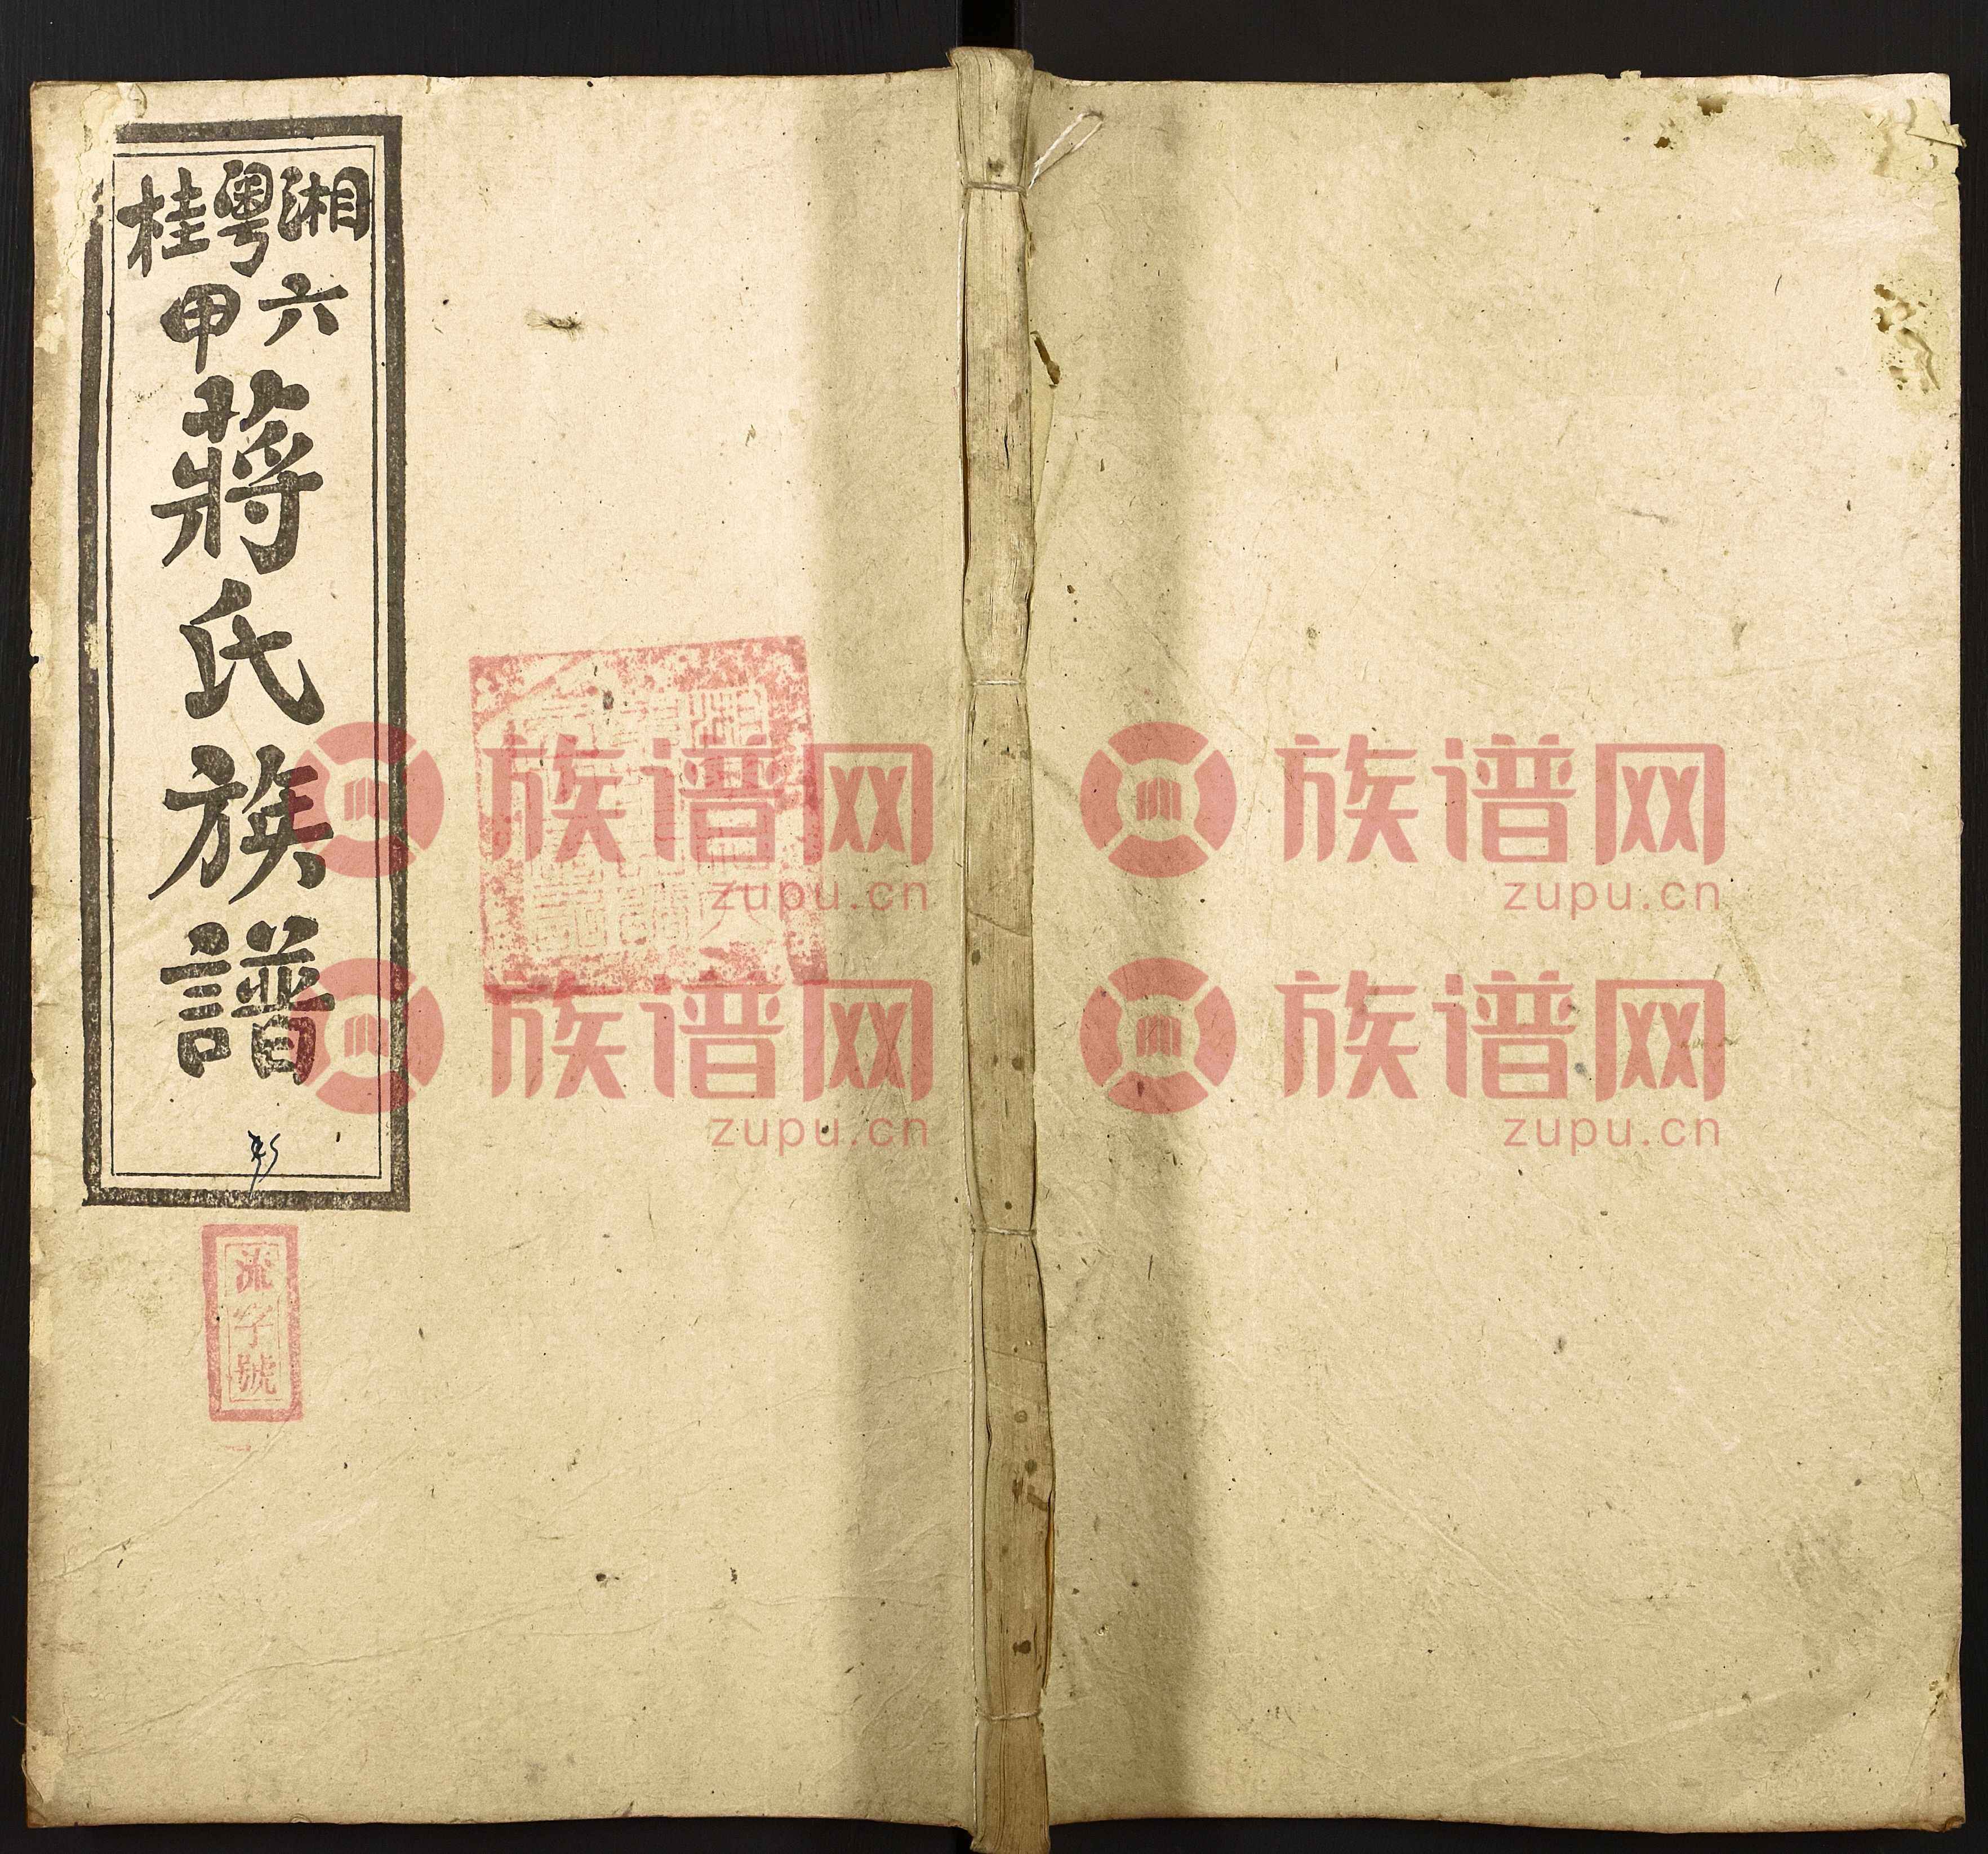 湘粤桂
六甲
蔣氏族譜
流字號
族谱网
zupu.cn
族谱网
zupu.cn
族谱网
zupu.cn
族谱网
zupu.cn